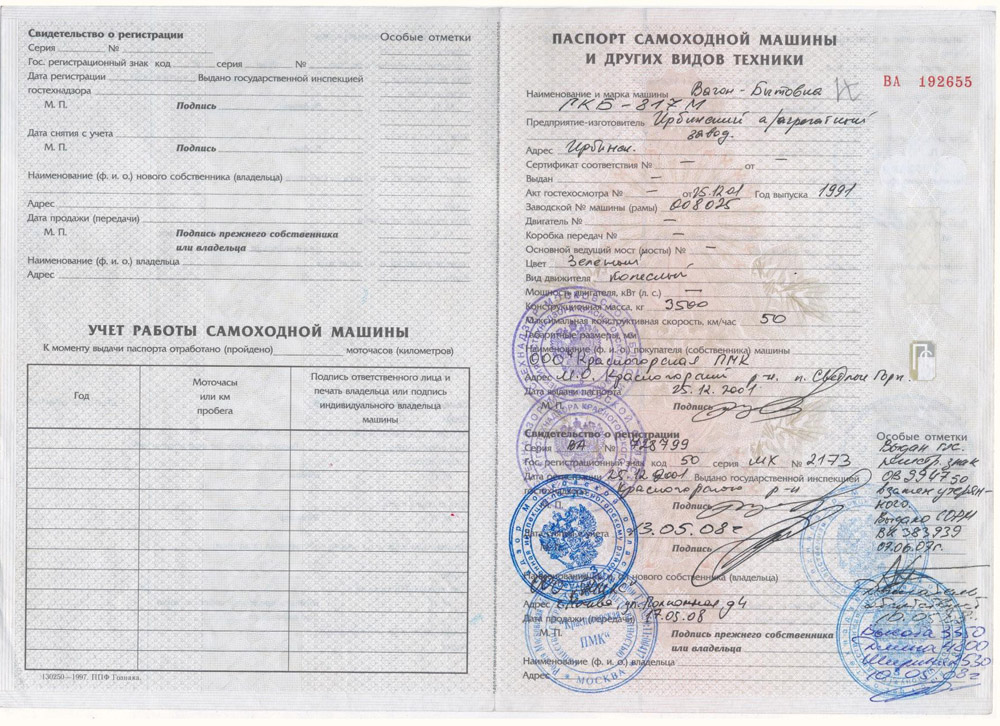 Свидетельство о регистрации
Особые отметки
Серия № 
Гос. регистрационный знак код серия №
Дата регистрации Выдано государственной инспекцией
гостехнадзора
М. П. Подпись
Дата снятия с учета
М. П. Подпись
Наименование (ф. и. о.) нового собственника (владельца)
Адрес
Дата продажи (передачи)
М. П. Подпись прежнего собственника
или владельца
Наименование (ф. и. о.) владельца
Адрес
УЧЕТ РАБОТЫ САМОХОДНОЙ МАШИНЫ
К моменту выдачи паспорта отработано (пройдено) моточасов (километров)
Год
Моточасы
или км
пробега
Подпись ответственного лица и
печать владельца или подпись
индивидуального владельца
машины
130250—1997. ППФ Гознака.
ПАСПОРТ САМОХОДНОЙ МАШИНЫ
И ДРУГИХ ВИДОВ ТЕХНИКИ
ВА 192655
Наименование и марка машины Вагон-Бытовка
ПКБ-817М
Предприятие-изготовитель Ирбинский а/агрегатный
завод.
Адрес Ирбинск.
Сертификат соответствия № — от —
Выдан —
Акт гостехосмотра № — от 25.12.01 Год выпуска 1991
Заводской № машины (рамы) 008025
Двигатель № —
Коробка передач № —
Основной ведущий мост (мосты) № —
Цвет Зеленый
Вид движителя Колесный
Мощность двигателя, кВт (л. с.) —
Конструкционная масса, кг 3500
Максимальная конструктивная скорость, км/час 50
Габаритные размеры, мм
Наименование (ф. и. о.) покупателя (собственника) машины
ООО "Красногорская ПМК
Адрес М.О. Красногорский р-н. п. Светлые Горы.
Дата выдачи паспорта 25.12.2001
М. П. Подпись
Свидетельство о регистрации
Серия ВА № 728799
Гос. регистрационный знак код 50 серия МХ № 2173
Дата регистрации 25.12.2001 Выдано государственной инспекцией
Красногорского р-н
М. П. Подпись
Дата снятия с учета 13.05.08г
Подпись
Наименование (ф. и. о.) нового собственника (владельца)
Адрес г. Москва ул. д4
Дата продажи (передачи) 17.05.08
М. П. Подпись прежнего собственника
или владельца
Наименование (ф. и. о.) владельца
Адрес
"Красногорская
ПМК"
МОСКВА
Особые отметки
Выдан гос.
регистр знак
ОВ 9947 50
взамен утерян-
ного.
Выдано СОРМ
ВК 383939
07.06.07г.
Высота 3350
длина 4800
Ширина 2530
10.05.08г